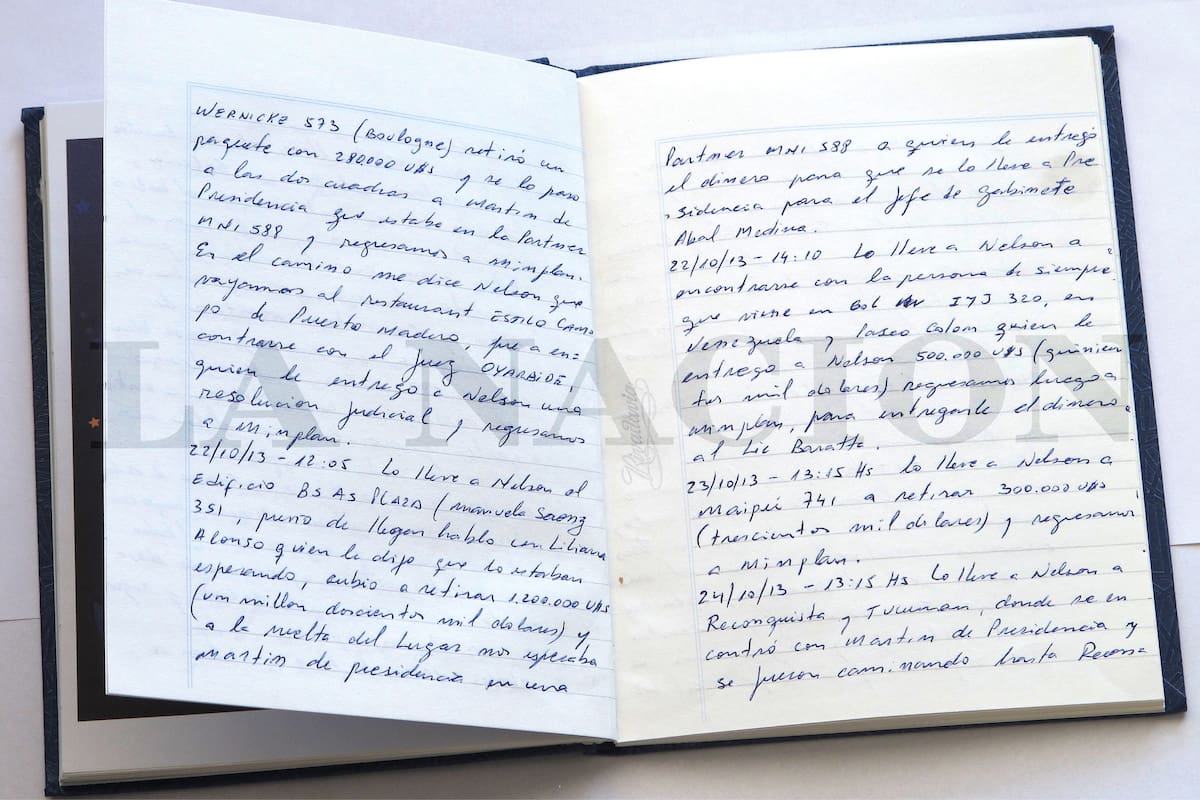 WERNICKE 573 (Boulogne) retiró un
paquete con 280.000 U$S y se lo paso
a las dos cuadras a Martin de
Presidencia que estaba en la Partner
MNI 588 y regresamos a Minplan.
En el camino me dice Nelson que
vayamos al restaurant ESTILO CAMPO
de Puerto Madero, fue a en=
contrarse con el Juez OYARBIDE,
quien le entregó a Nelson una
resolucion judicial y regresamos
a Minplan.
22/10/13 - 12:05 Lo lleve a Nelson al
Edificio BS AS PLAZA (Manuela Saenz
351, previo de llegar hablo con Liliana
Alonso quien le dijo que lo estaban
esperando, subio a retirar 1.200.000 U$S
(un millon doscientos mil dolares) y
a la vuelta del lugar nos esperaba
Martin de presidencia en una
Partner MNI 588 a quien le entregó
el dinero para que se lo lleve a Pre
sidencia para el Jefe de gabinete
Abal Medina.
22/10/13 - 14:10 Lo lleve a Nelson a
encontrarse con la persona de siempre
que viene en Gol IYJ 320, en
Venezuela y Paseo Colon quien le
entrego a Nelson 500.000 U$S (quinien
tos mil dolares) regresamos luego a
Minplan, para entregarle el dinero
al Lic Baratta.
23/10/13 - 13:15 Hs Lo lleve a Nelson a
Maipú 741 a retirar 300.000 U$S
(trescientos mil dolares) y regresamos
a Minplan.
24/10/13 - 13:15 Hs Lo lleve a Nelson a
Reconquista y Tucuman, donde se en
contró con Martin de Presidencia y
se fueron caminando hasta Recon=
LA NACION